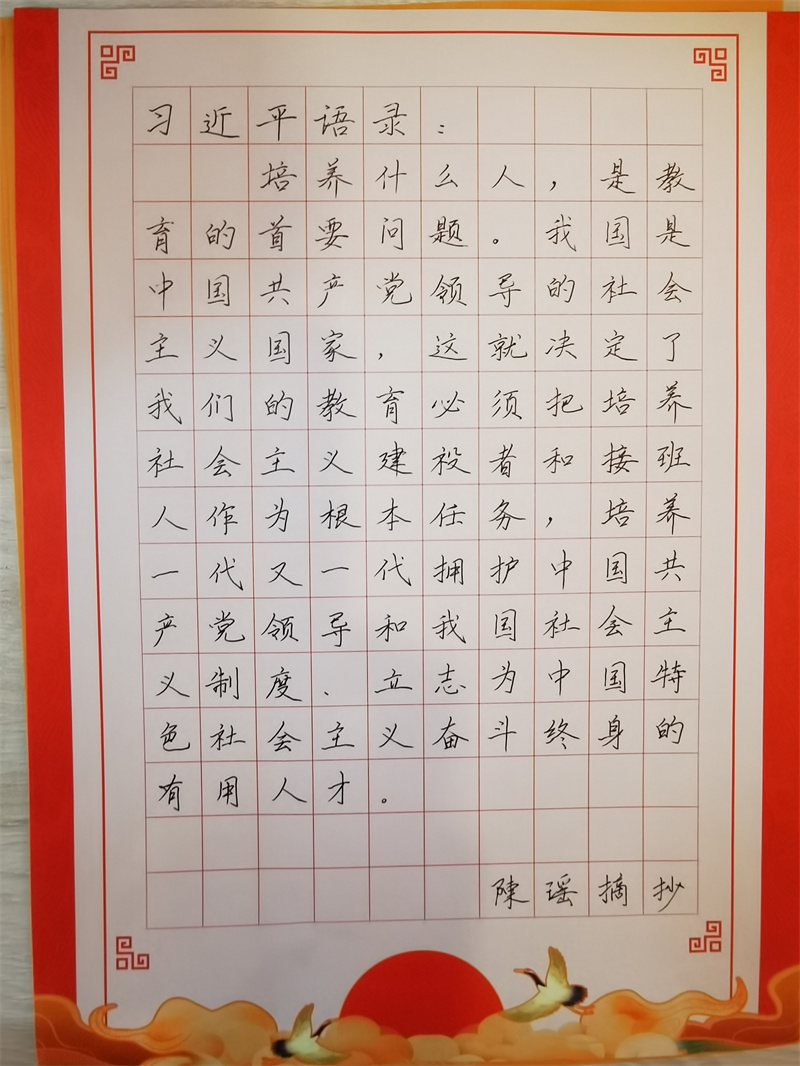 习近平语录：
培养什么人，是教
育的首要问题。我国是
中国共产党领导的社会
主义国家，这就决定了
我们的教育必须把培养
社会主义建设者和接班
人作为根本任务，培养
一代又一代拥护中国共
产党领导和我国社会主
义制度、立志为中国特
色社会主义奋斗终身的
有用人才。
陳瑶摘抄